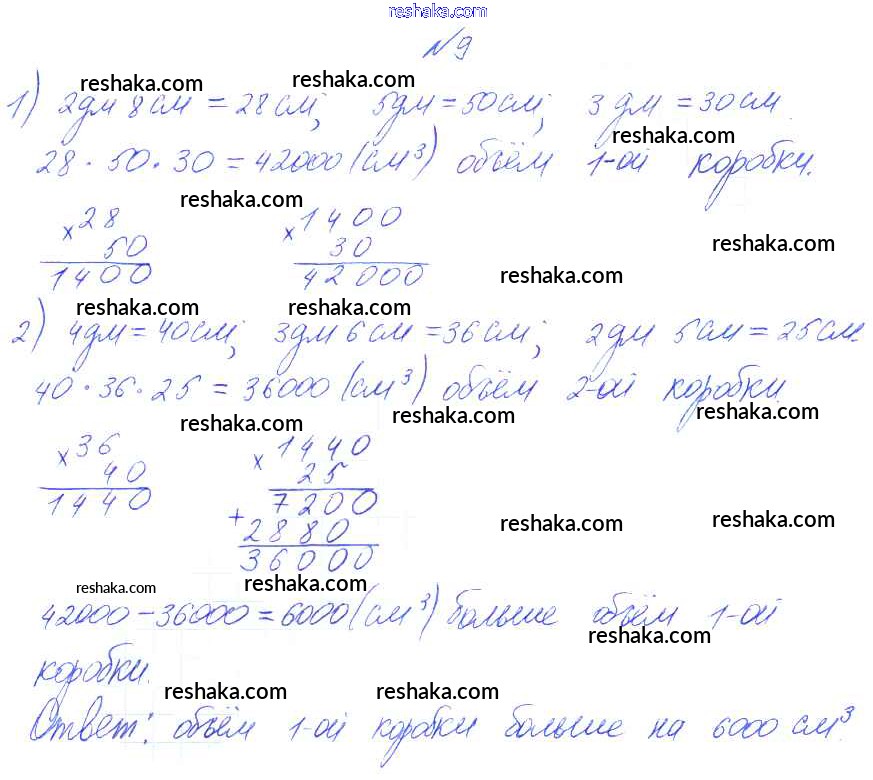 reshaka.com
№9
reshaka.com reshaka.com
1) 2дм 8см = 28см; 5дм = 50см; 3 дм = 30см
reshaka.com
28 · 50 · 30 = 42000 (см³) объём 1-ой коробки.
reshaka.com
× 28 × 1400
50 30
reshaka.com
1400 42000
reshaka.com
reshaka.com reshaka.com
2) 4дм = 40см; 3дм 6см = 36см; 2дм 5см = 25см.
40 · 36 · 25 = 36000 (см³) объём 2-ой коробки.
reshaka.com reshaka.com reshaka.com
× 36 × 1440
40 25
1440 7200
+ 2880
reshaka.com reshaka.com
36000
reshaka.com reshaka.com
42000 – 36000 = 6000 (см³) больше объём 1-ой
reshaka.com
коробки.
reshaka.com reshaka.com
Ответ: объём 1-ой коробки больше на 6000 см³.